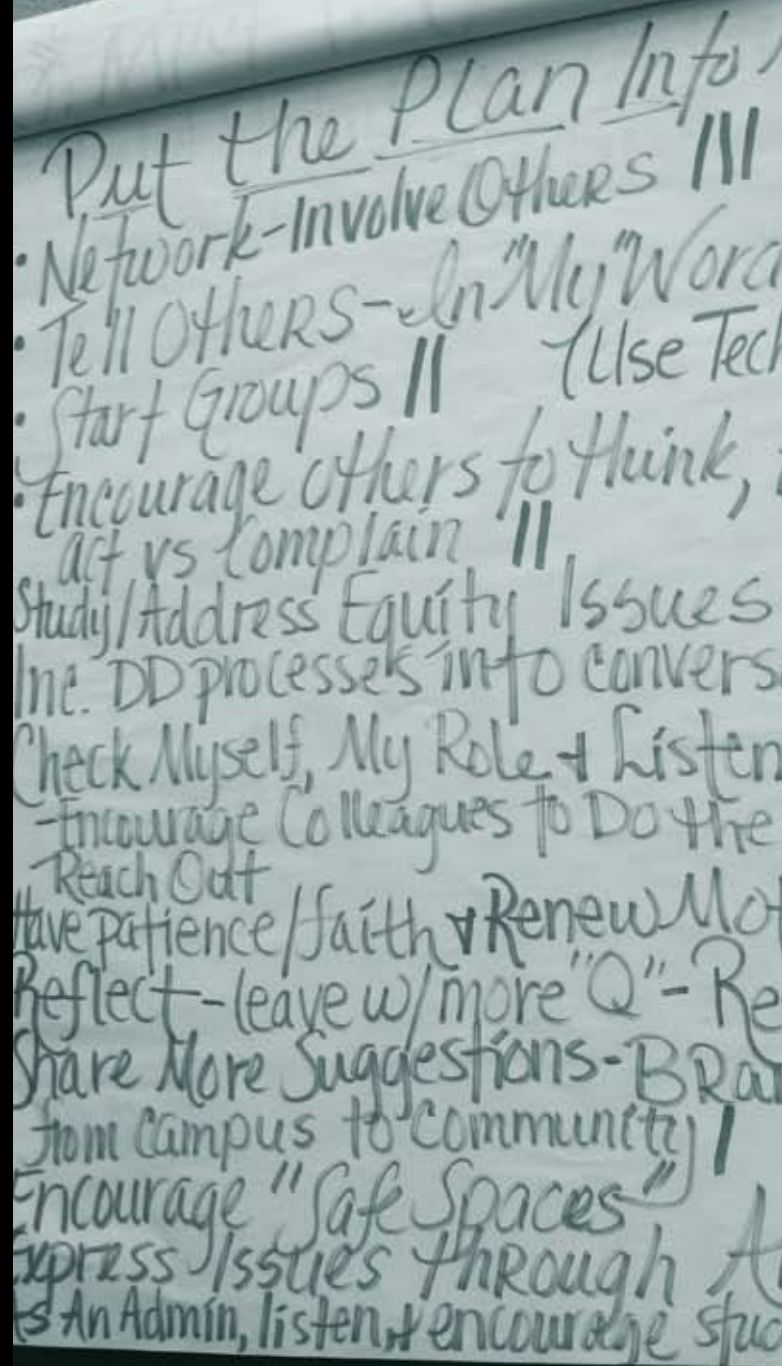 Put the Plan Into
• Network-Involve Others III
• Tell Others-In "My" Word
(Use Tech
• Start Groups II
• Encourage others to think,
act vs Complain II
Study/Address Equity Issues
Inc. DD processes into convers
Check Myself, My Role & Listen
-Encourage Colleagues to Do the
-Reach Out
Have patience/faith & Renew Mot
Reflect-leave w/more "Q"-Re
Share More Suggestions-BRan
from Campus to Community I
Encourage "Safe Spaces"
Express Issues through A
As An Admin, listen, & encourage stud